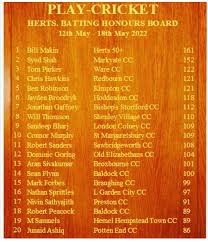 PLAY-CRICKET
HERTS. BATTING HONOURS BOARD
12th May - 18th May 2022
1 Bill Makin Herts 50+ 161
2 Syed Shah Markyate CC 152
3 Tom Parker Ware CC 122
4 Chris Hawkins Redbourn CC 121
5 Ben Robinson Knebworth CC 121
6 Jayden Broodryk Hoddesdon CC 118
7 Jonathan Gaffney Bishops Stortford CC 117
8 Will Thomson Shenley Village CC 110
9 Sandeep Bharj London Colney CC 110
10 Connor Murphy St Margaretsbury CC 109
11 Robert Sanders Sawbridgeworth CC 103
12 Dominic Goring Old Elizabethans CC 103
13 Arvin Sivakumar Broxbourne CC 102
14 Sean Flynn Baldock CC 101
15 Mark Forbes Braughing CC 99
16 Nathan Sprittles L Garden City CC 97
17 Nivin Sathyajith Preston CC 97
18 Robert Peacock Baldock CC 91
19 M Samuels Hemel Hempstead Town CC 89
20 Junaid Ashiq Potten End CC 86